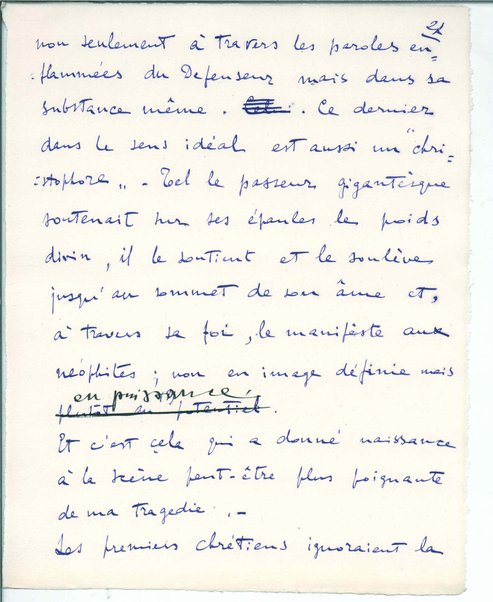 21
non seulement à travers les paroles en=
=flammées du Defenseur mais dans sa
substance même. Ce dernier
dans le sens idéal est aussi un "chri-
=stophore„ - Tel le passeur gigantèsque
soutenait sur ses épaules le poids
divin, il le soutient et le soulève
jusqu'au sommet de son âme et,
à travers sa foi, le manifèste aux
néophites; non en image définie mais
en puissance.
plutôt au potentiel.
Et c'est çela qui a donné naissance
à la scène peut-être plus poignante
de ma tragedie. -
Les premiers chrétiens ignoraient la